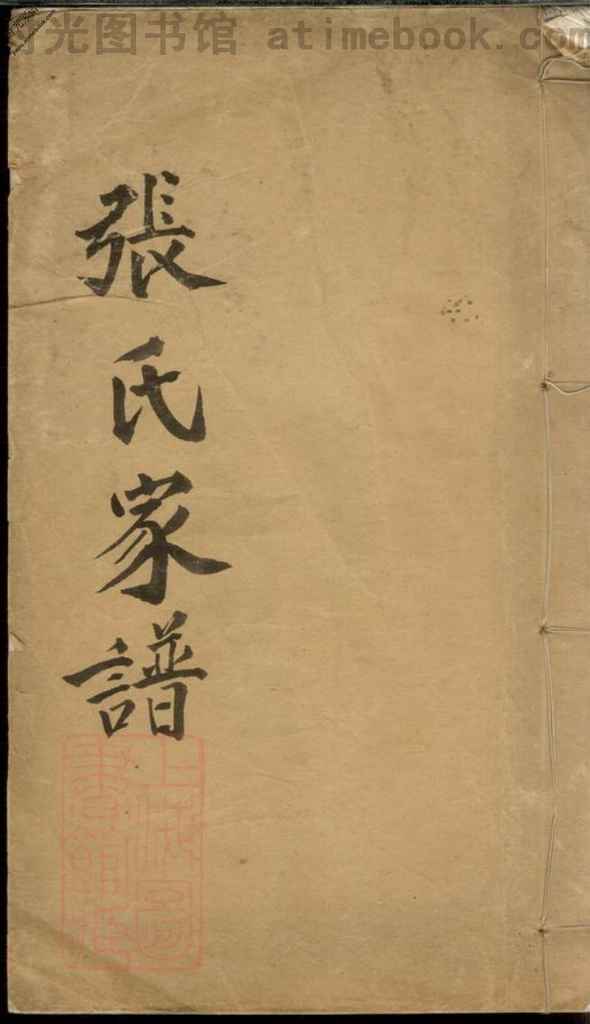 时光图书馆 atimebook.com
張氏家譜
上海圖
書館藏